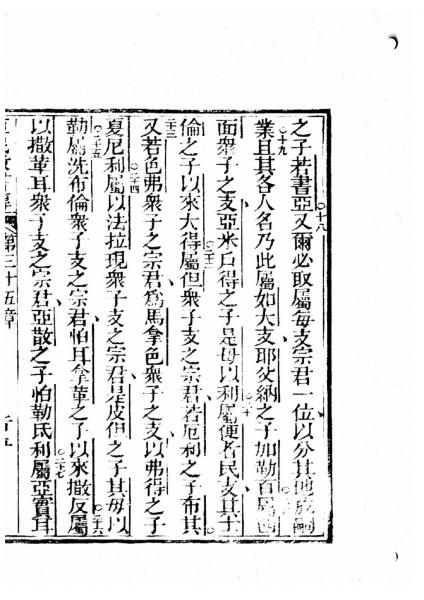 ○十八
之子若書亞又爾必取屬每支宗君一位以分其地嗣
○十九
業且其各人名乃此屬如大支耶孜納之子加勒百屬西
面衆子之支亞米戶得之子是毋以利屬便者民支其士
○二十二
倫之子以來大得屬但衆子支之宗君若厄利之子布其
二十三
又若色弗衆子之宗君爲馬拿色衆子之支以弗得之子
○二十四
夏尼利屬以法拉現衆子支之宗君是皮但之子其毋以
○二十五
○二十六
勒屬洗布倫衆子支之宗君怕耳拿革之子以來撒反屬
○二十七
以撒革耳衆子支之宗君亞散之子怕勒氏利屬亞實耳
第三十五章